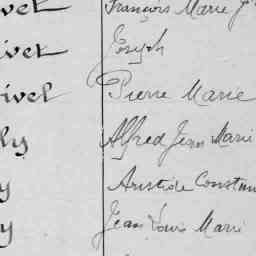 vet François Marie J
ivet Joseph
rivel Pierre Marie
ly Alfred Jean Marie
y Aristide Constan
y Jean Louis Marie